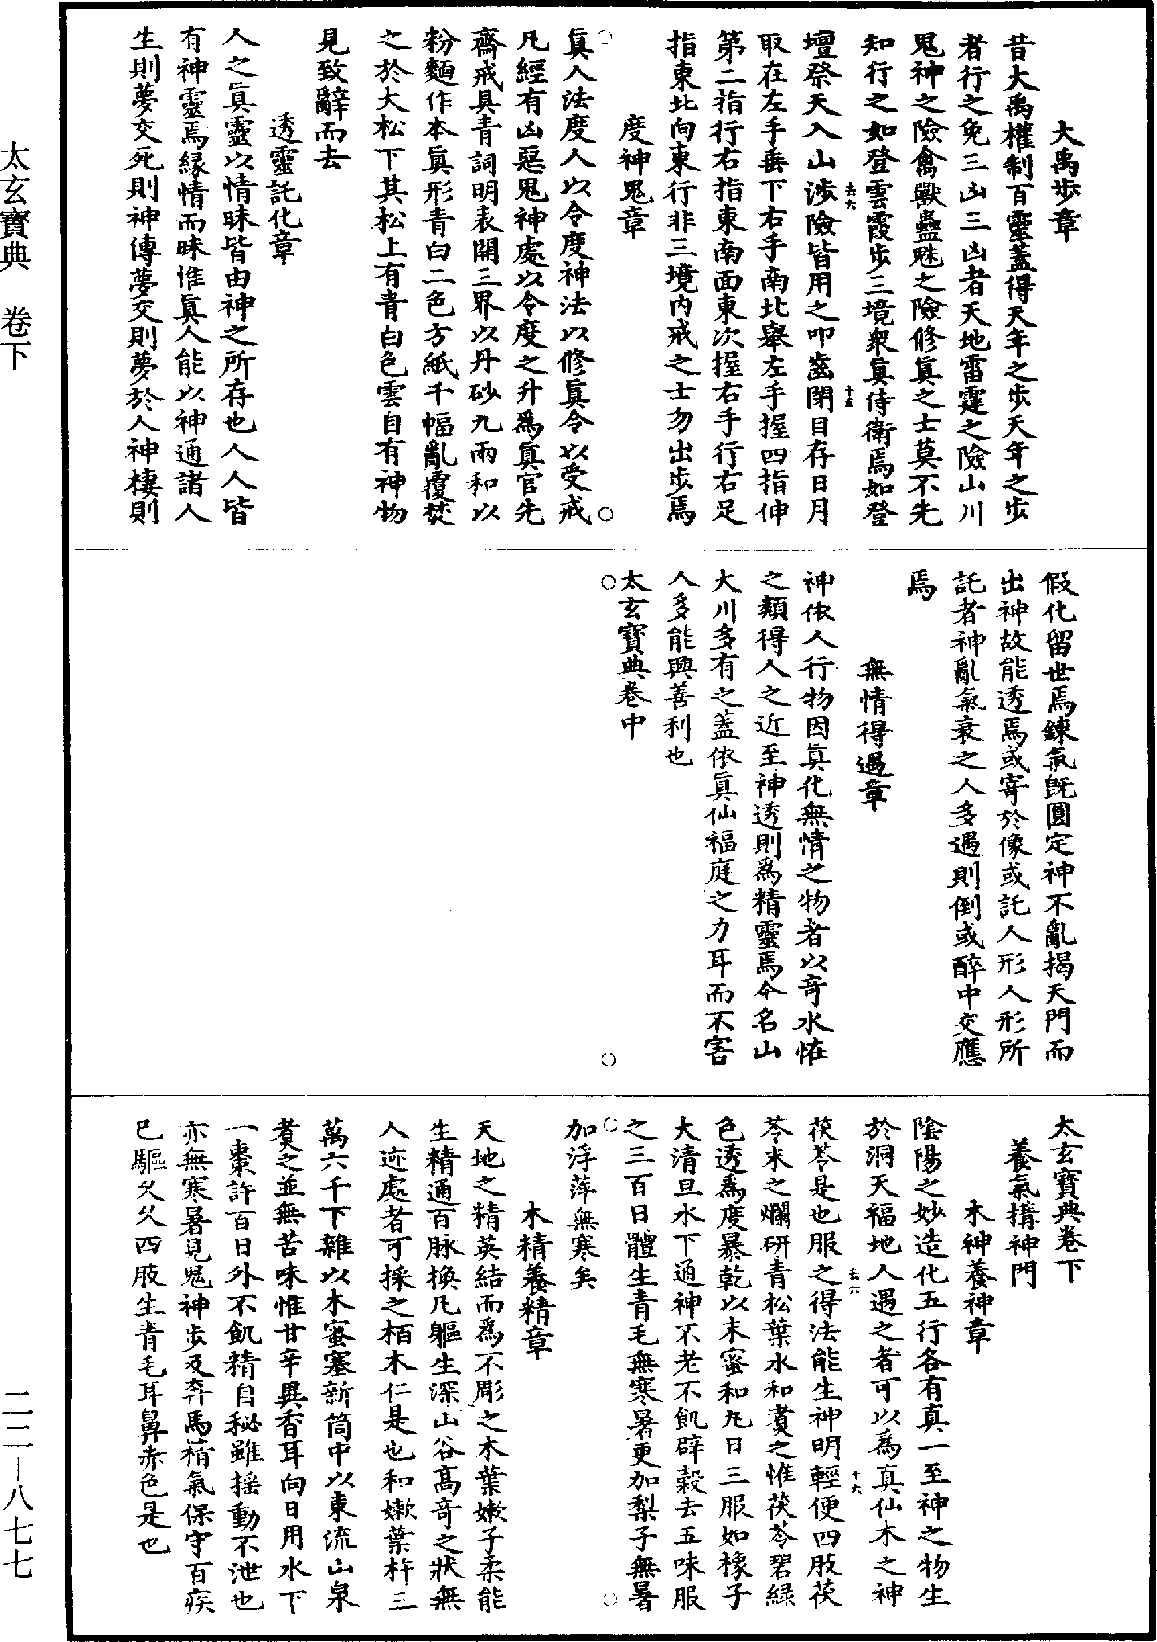 太玄寶典　卷下
二二－八七七
大禹步章
昔大禹權制百靈蓋得天年之步天年之步
者行之免三凶三凶者天地雷霆之險山川
鬼神之險禽獸蠱魅之險修真之士莫不先
知行之如登雲霞步三境衆真侍衛焉如登
壇祭天入山涉險皆用之叩齒閉目存日月
取在左手垂下右手南北舉左手握四指伸
第二指行右指東南面東次握右手行右足
指東北向東行非三境內戒之士勿出步焉
度神鬼章
真人法度人以令度神法以修真令以受戒
凡經有凶惡鬼神處以令度之升為真官先
齋戒具青詞明表開三界以丹砂九兩和以
粉麵作本真形青白二色方紙千幅亂覆焚
之於大松下其松上有青白色雲自有神物
見致辭而去
透靈託化章
人之真靈以情昧皆由神之所存也人人皆
有神靈焉緣情而昧惟真人能以神通諸人
生則夢交死則神傳夢交則夢於人神棲則
假化留世焉鍊氣旣圓定神不亂揭天門而
出神故能透焉或寄於像或託人形人形所
託者神亂氣衰之人多遇則倒或醉中交應
焉
無情得遇章
神依人行物因真化無情之物者以奇水恠
之類得人之近至神透則為精靈焉今名山
大川多有之蓋依真仙福庭之力耳而不害
人多能興善利也
太玄寶典卷中
太玄寶典卷下
養氣搆神門
木神養神章
陰陽之妙造化五行各有真一至神之物生
於洞天福地人遇之者可以為真仙木之神
茯苓是也服之得法能生神明輕便四肢茯
苓末之爛研青松葉水和煑之惟茯苓碧綠
色透為度暴乾以末蜜和九日三服如橡子
大清旦水下通神不老不飢辟穀去五味服
之三百日體生青毛無寒暑更加梨子無暑
加浮萍無寒矣
木精養精章
天地之精英結而為不彫之木葉嫩子柔能
生精通百脉換凡軀生深山谷高奇之狀無
人迹處者可採之栢木仁是也和嫩葉杵三
萬六千下雜以木蜜塞新筒中以東流山泉
煑之並無苦味惟甘辛異香耳向日用水下
一棗許百日外不飢精自秘雖搖動不泄也
亦無寒暑見鬼神步及奔馬精氣保守百疾
已驅久久四肢生青毛耳鼻赤色是也